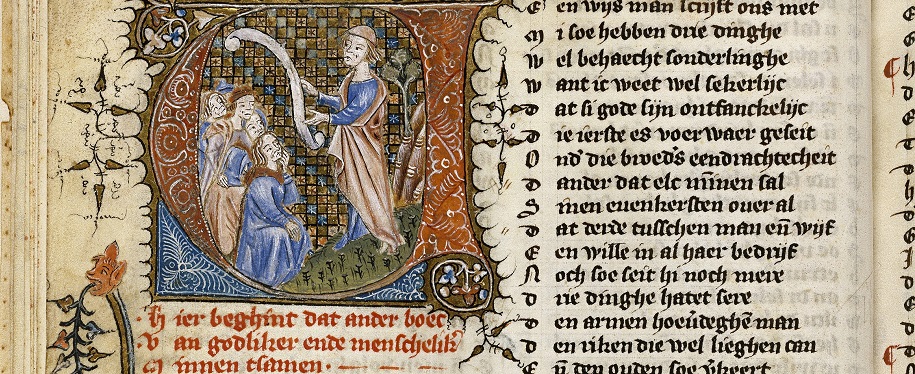 H ier beghint dat ander boec
V an godliker ende menschelik'
M innen tsamen
E en wijs man scrijft ons met
M i soe hebben drie dinghe
W el behaecht sonderlinghe
W ant ic weet wel sekerlijc
D at si gode sijn ontfanckelijc
D ie ierste es voer waer geseit
O nd' die brued's eendrachtecheit
D ander dat elc mīnen sal
S inen evenkersten over al
D at derde tusschen man en̄ wijf
E en wille in al haer bedrijf
N och soe seit hi noch mere
D rie dinghe hatet sere
D en armen hoeu'deghē man
D en riken die wel lieghen can
E n̄ den ouden soe